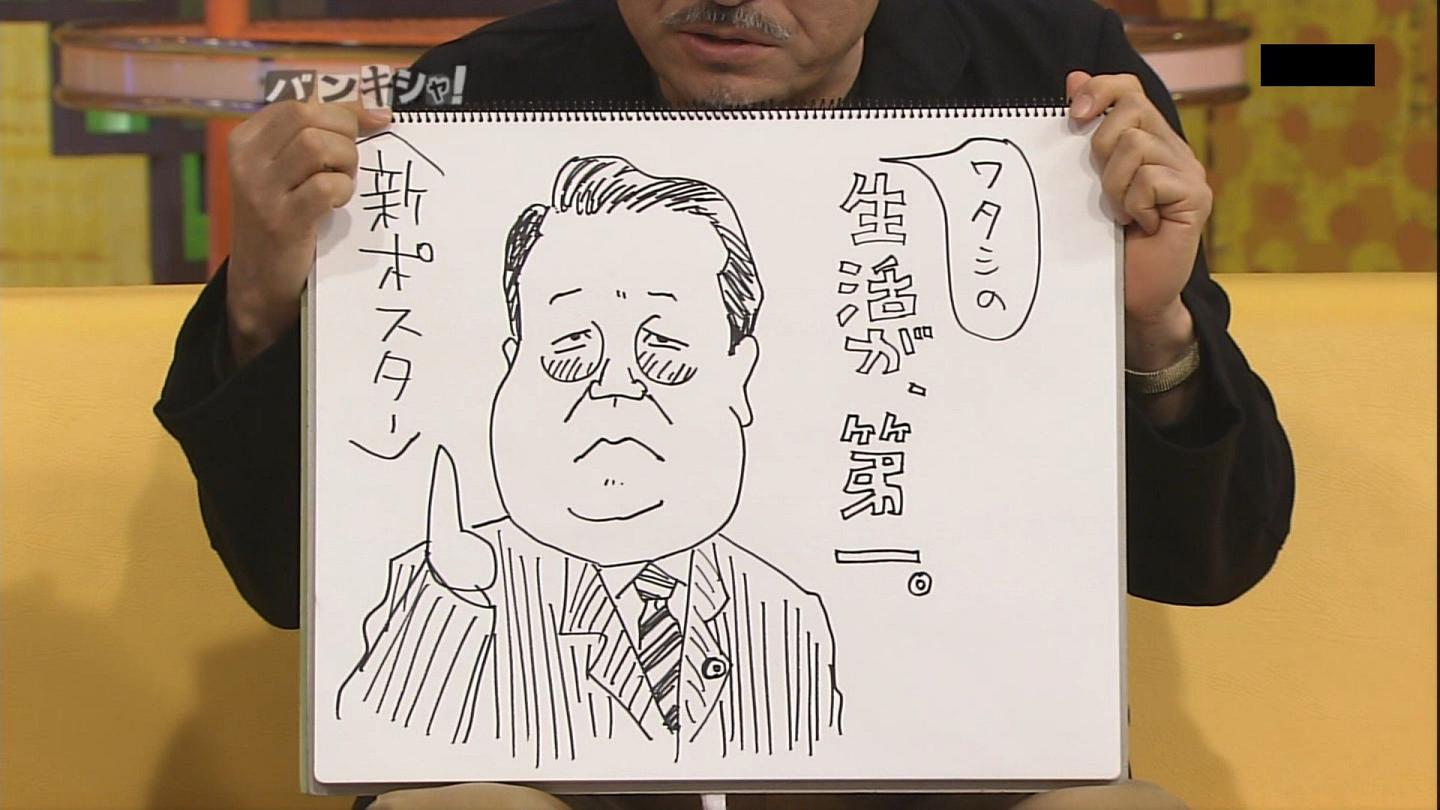 バンキシャ!
ワタシの
生活が、
第一。
〈新ポスター〉